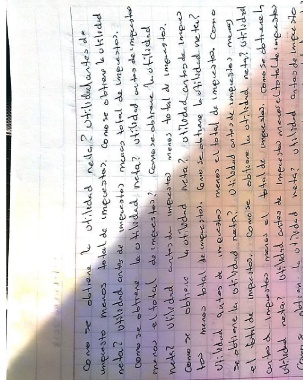 Como se obtiene la utilidad neta? Utilidad antes de
impuesto menos total de impuestos. Como se obtiene la utilidad
neta? Utilidad antes de impuestos menos total de impuestos.
Como se obtiene la utilidad neta? Utilidad antes de impuestos
menos el total de impuestos? Como se obtiene la utilidad
neta? Utilidad antes de impuestos menos total de impuestos.
Como se obtiene la utilidad neta? Utilidad antes de impues
tos menos total de impuestos. Como se obtiene la utilidad neta?
Utilidad antes de impuestos menos el total de impuestos. Como
se obtiene la utilidad neta? Utilidad antes de impuestos menos
el total de impuestos. Como se obtiene la utilidad neta? Utilidad
antes de impuestos menos el total de impuestos. Como se obtiene la
utilidad neta. Utilidad antes de impuestos menos el total de impuestos
se la utilidad neta? Utilidad antes de impuestos